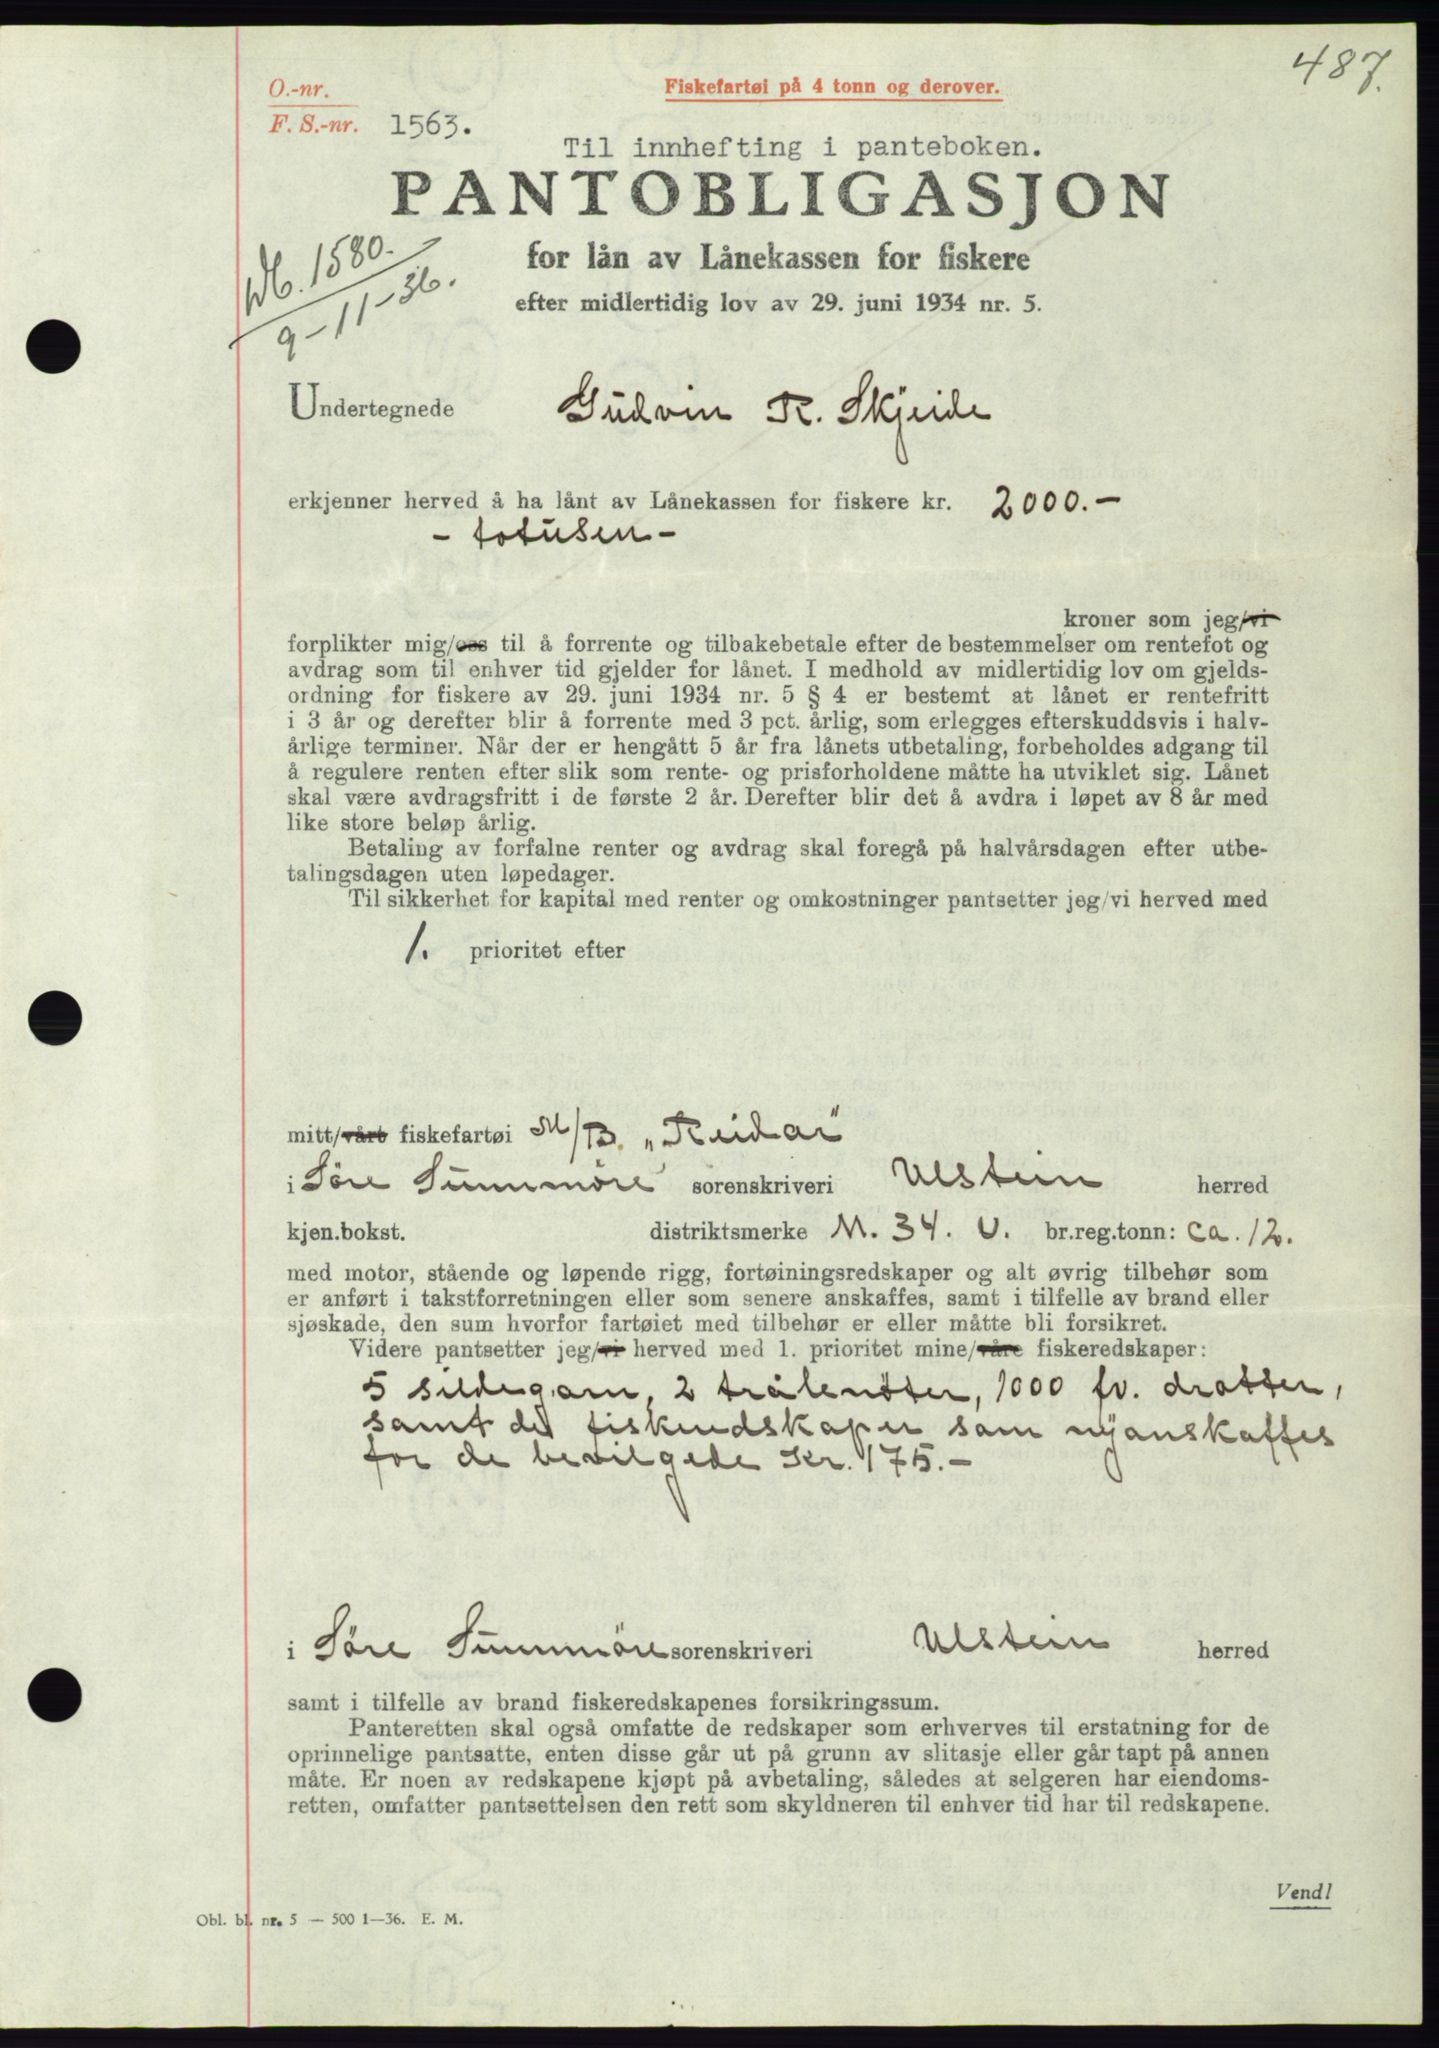 487.
O.-nr.
Fiskefartøi på 4 tonn og derover.
F. S.-nr. 1563.
Til innhefting i panteboken.
PANTOBLIGASJON
for lån av Lånekassen for fiskere
efter midlertidig lov av 29. juni 1934 nr. 5.
Db. 1580.
9-11-36.
Undertegnede Gudvin R. Skjeide
erkjenner herved å ha lånt av Lånekassen for fiskere kr. 2000.-
- totusen -
kroner som jeg/vi
forplikter mig/oss til å forrente og tilbakebetale efter de bestemmelser om rentefot og
avdrag som til enhver tid gjelder for lånet. I medhold av midlertidig lov om gjelds-
ordning for fiskere av 29. juni 1934 nr. 5 § 4 er bestemt at lånet er rentefritt
i 3 år og derefter blir å forrente med 3 pct. årlig, som erlegges efterskuddsvis i halv-
årlige terminer. Når der er hengått 5 år fra lånets utbetaling, forbeholdes adgang til
å regulere renten efter slik som rente- og prisforholdene måtte ha utviklet sig. Lånet
skal være avdragsfritt i de første 2 år. Derefter blir det å avdra i løpet av 8 år med
like store beløp årlig.
Betaling av forfalne renter og avdrag skal foregå på halvårsdagen efter utbe-
talingsdagen uten løpedager.
Til sikkerhet for kapital med renter og omkostninger pantsetter jeg/vi herved med
1. prioritet efter
mitt/vårt fiskefartøi M/B. „Reidar"
i Søre Sunnmøre sorenskriveri Ulstein herred
kjen.bokst. distriktsmerke M. 34. U. br.reg.tonn: ca. 12.
med motor, stående og løpende rigg, fortøiningsredskaper og alt øvrig tilbehør som
er anført i takstforretningen eller som senere anskaffes, samt i tilfelle av brand eller
sjøskade, den sum hvorfor fartøiet med tilbehør er eller måtte bli forsikret.
Videre pantsetter jeg/vi herved med 1. prioritet mine/våre fiskeredskaper:
5 sildegarn, 2 trålenøter, 1000 fv. dratter,
samt de fiskeredskaper som nyanskaffes
for de bevilgede kr. 175.-
i Søre Sunnmøre sorenskriveri Ulstein herred
samt i tilfelle av brand fiskeredskapenes forsikringssum.
Panteretten skal også omfatte de redskaper som erhverves til erstatning for de
oprinnelige pantsatte, enten disse går ut på grunn av slitasje eller går tapt på annen
måte. Er noen av redskapene kjøpt på avbetaling, således at selgeren har eiendoms-
retten, omfatter pantsettelsen den rett som skyldneren til enhver tid har til redskapene.
Vend!
Obl. bl. nr. 5 — 500 1—36. E. M.